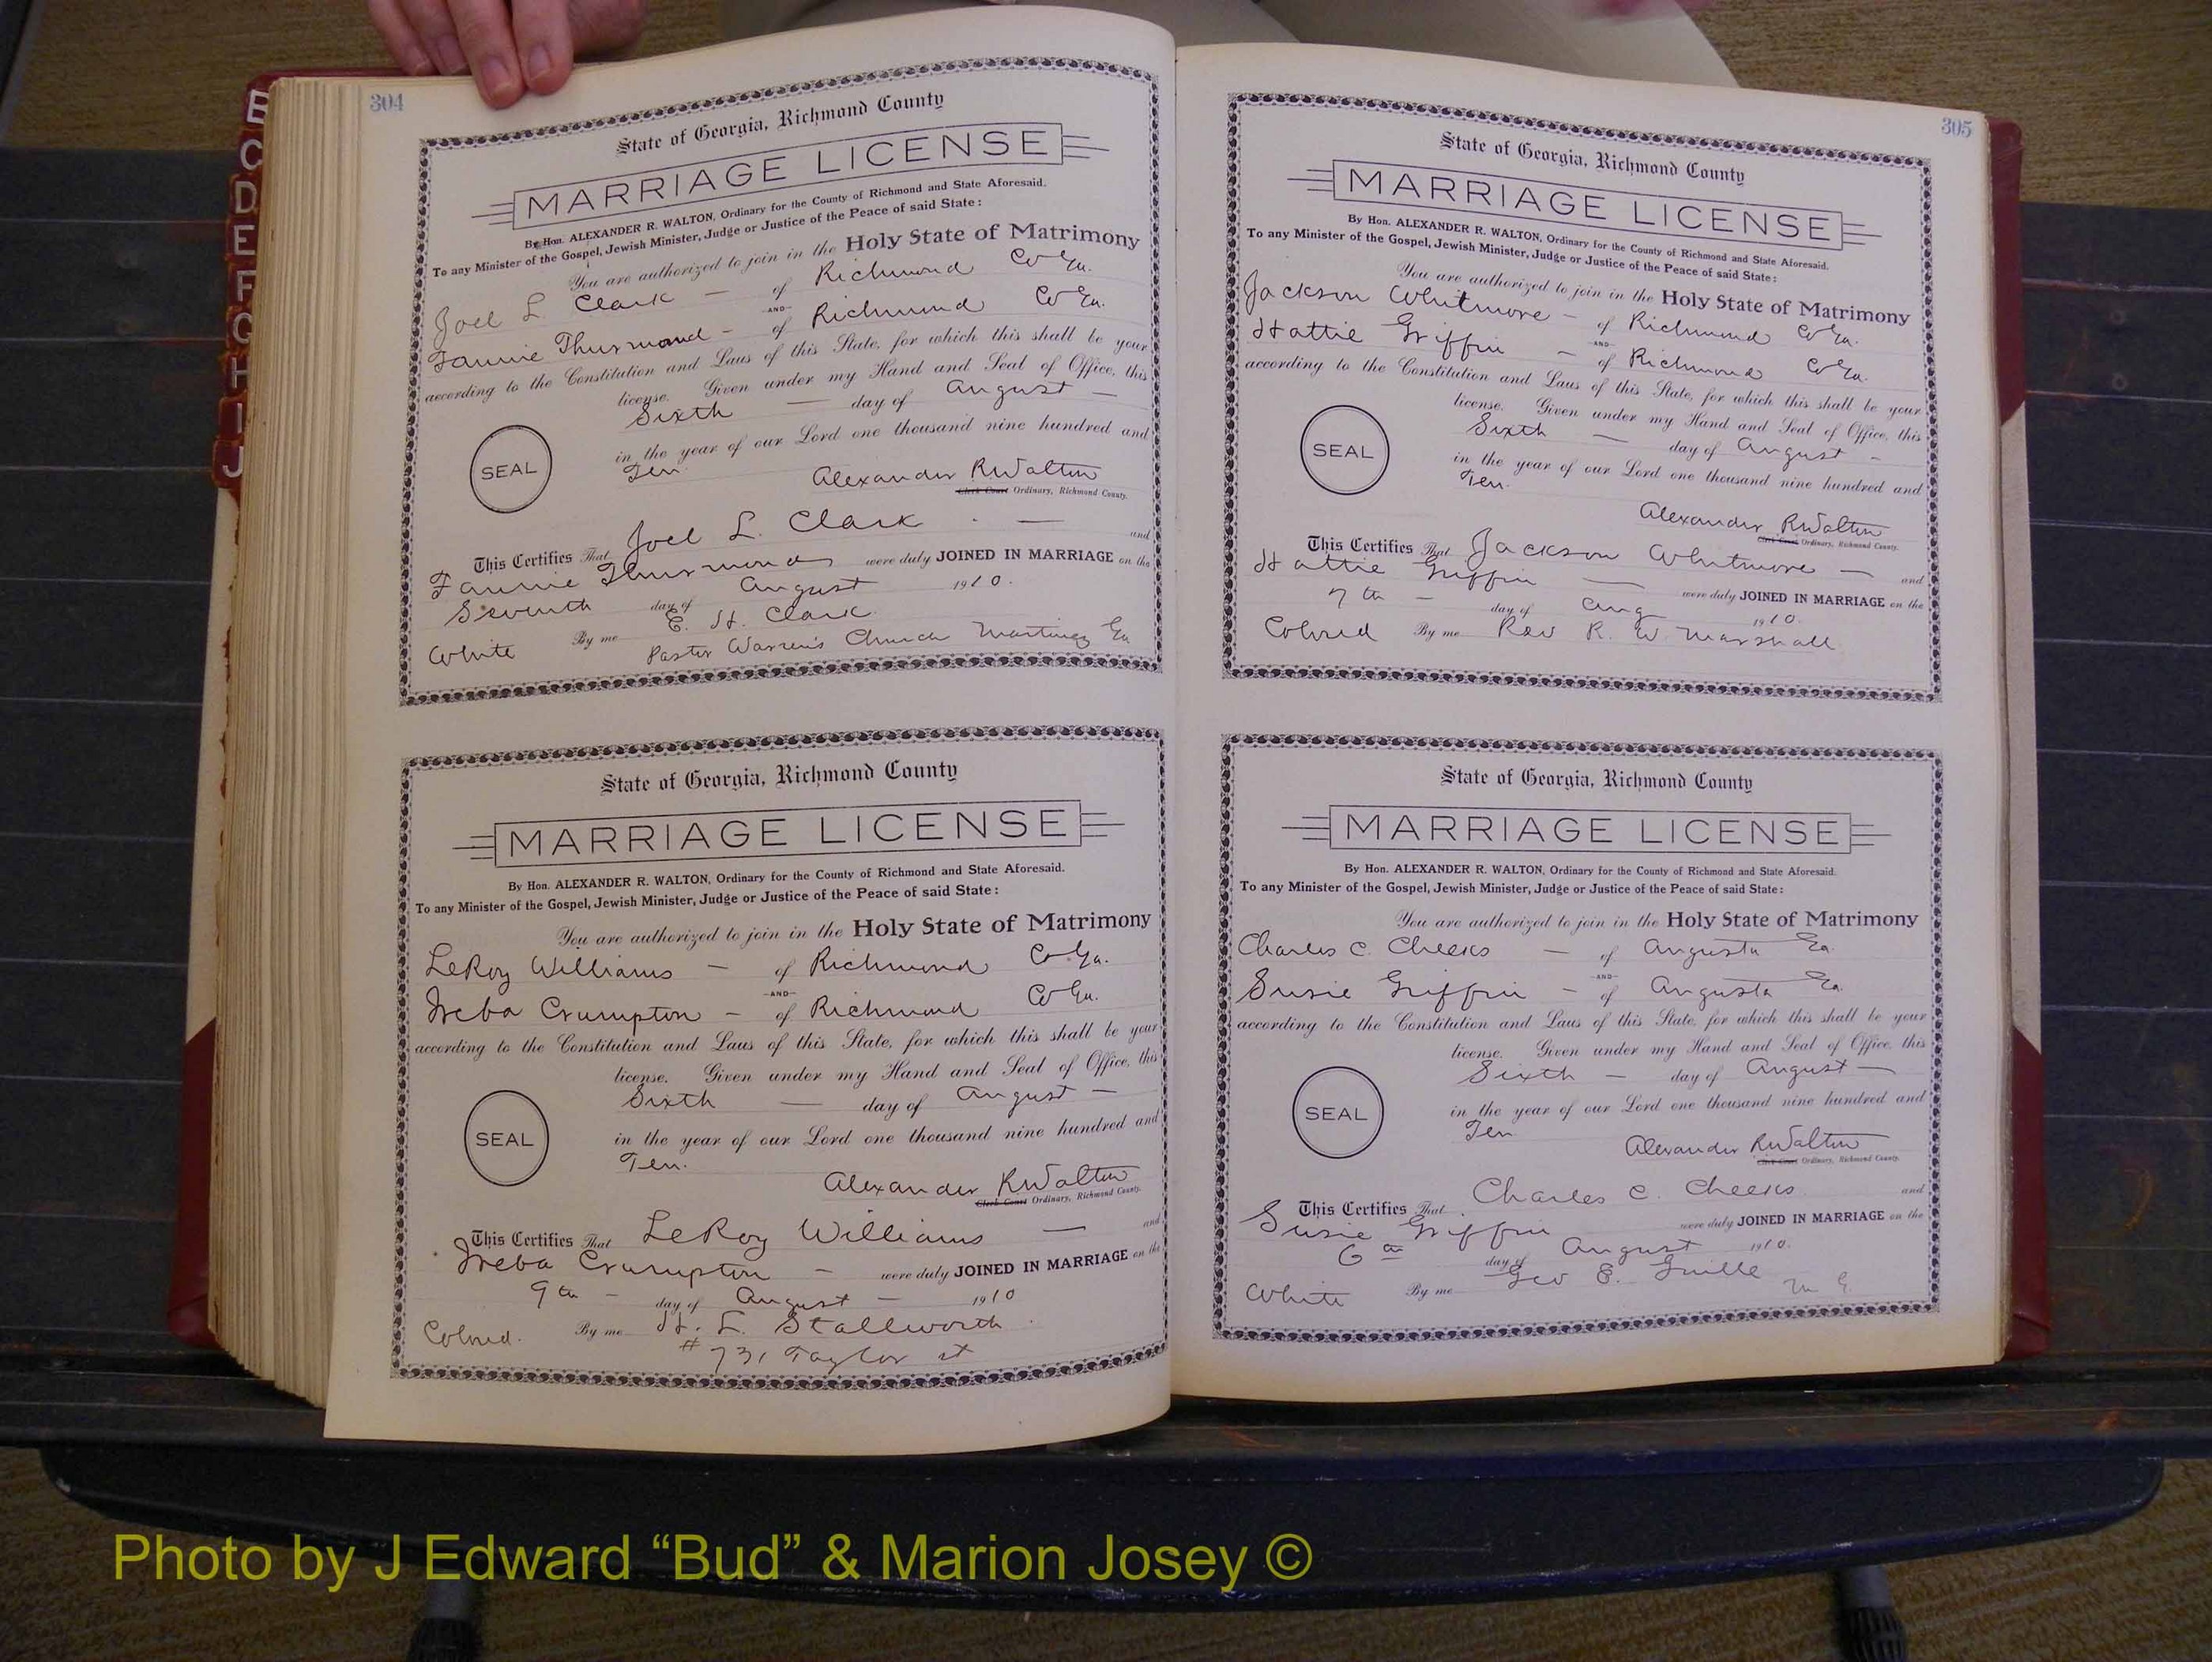 B
C
D
E
F
G
H
I
J
304
State of Georgia, Richmond County
MARRIAGE LICENSE
By Hon. ALEXANDER R. WALTON, Ordinary for the County of Richmond and State Aforesaid.
To any Minister of the Gospel, Jewish Minister, Judge or Justice of the Peace of said State:
You are authorized to join in the Holy State of Matrimony
Joel L. Clark — of Richmond Co Ga.
-AND-
Fannie Thurmond - of Richmond Co Ga.
according to the Constitution and Laws of this State, for which this shall be your
license. Given under my Hand and Seal of Office, this
Sixth — day of August —
SEAL
in the year of our Lord one thousand nine hundred and
Ten.
Alexander R Walton
Clerk Court Ordinary, Richmond County.
This Certifies That Joel L. Clark — and
Fannie Thurmond were duly JOINED IN MARRIAGE on the
Seventh day of August 1910.
White By me E. H. Clark
Pastor Warren's Church Martinez Ga
State of Georgia, Richmond County
MARRIAGE LICENSE
By Hon. ALEXANDER R. WALTON, Ordinary for the County of Richmond and State Aforesaid.
To any Minister of the Gospel, Jewish Minister, Judge or Justice of the Peace of said State:
You are authorized to join in the Holy State of Matrimony
LeRoy Williams — of Richmond Co Ga.
-AND-
Ireba Crumpton — of Richmond Co Ga.
according to the Constitution and Laws of this State, for which this shall be your
license. Given under my Hand and Seal of Office, this
Sixth — day of August —
SEAL
in the year of our Lord one thousand nine hundred and
Ten.
Alexander R Walton
Clerk Court Ordinary, Richmond County.
This Certifies That LeRoy Williams — and
Ireba Crumpton — were duly JOINED IN MARRIAGE on the
9th — day of August — 1910
Colored. By me H. L. Stallworth
# 731 Taylor st
305
State of Georgia, Richmond County
MARRIAGE LICENSE
By Hon. ALEXANDER R. WALTON, Ordinary for the County of Richmond and State Aforesaid.
To any Minister of the Gospel, Jewish Minister, Judge or Justice of the Peace of said State:
You are authorized to join in the Holy State of Matrimony
Jackson Whitmore — of Richmond Co Ga.
-AND-
Hattie Griffin — of Richmond Co Ga.
according to the Constitution and Laws of this State, for which this shall be your
license. Given under my Hand and Seal of Office, this
Sixth — day of August -
SEAL
in the year of our Lord one thousand nine hundred and
Ten.
Alexander R Walton
Clerk Court Ordinary, Richmond County.
This Certifies That Jackson Whitmore — and
Hattie Griffin — were duly JOINED IN MARRIAGE on the
7th — day of Aug 1910.
Colored By me Rev R. W. Marshall
State of Georgia, Richmond County
MARRIAGE LICENSE
By Hon. ALEXANDER R. WALTON, Ordinary for the County of Richmond and State Aforesaid.
To any Minister of the Gospel, Jewish Minister, Judge or Justice of the Peace of said State:
You are authorized to join in the Holy State of Matrimony
Charles C. Cheeks — of Augusta Ga.
-AND-
Susie Griffin — of Augusta Ga.
according to the Constitution and Laws of this State, for which this shall be your
license. Given under my Hand and Seal of Office, this
Sixth — day of August —
SEAL
in the year of our Lord one thousand nine hundred and
Ten
Alexander R Walton
Clerk Court Ordinary, Richmond County.
This Certifies That Charles C. Cheeks and
Susie Griffin were duly JOINED IN MARRIAGE on the
6th day of August 1910.
White By me Geo E. Guille M G.
Photo by J Edward “Bud” & Marion Josey ©